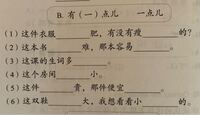 B. 有（一）点儿 一点儿
(1) 这件衣服______肥，有没有瘦______的？
(2) 这本书______难，那本容易______。
(3) 这课的生词多______。
(4) 这个房间______小。
(5) 这件______贵，那件便宜______。
(6) 这双鞋______大，我想看看小______的。